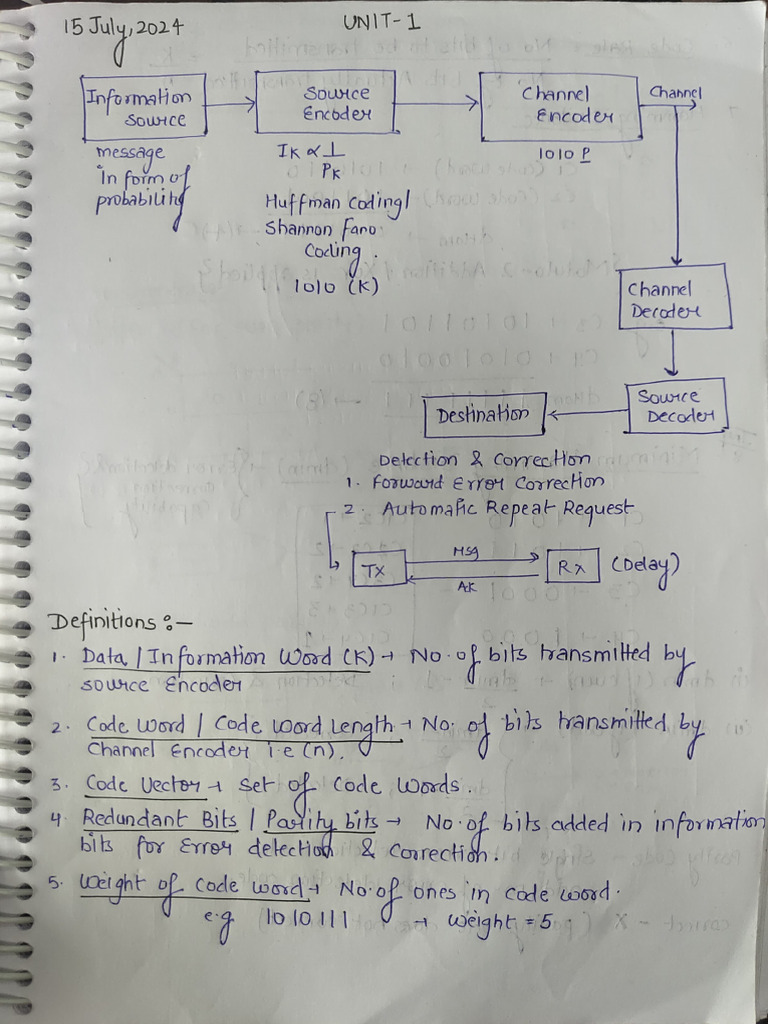 15 July, 2024
UNIT-1
Information Source
Source Encoder
Channel Encoder
Channel
message
in form of
probability
IK ∝ 1/PK
Huffman Coding/
Shannon Fano
Coding.
1010 (K)
1010 P
Channel Decoder
Source Decoder
Destination
Detection & Correction
1. Forward Error Correction
2. Automatic Repeat Request
TX
Msg
AK
Rx
(Delay)
Definitions :-
1. Data / Information Word (K) → No. of bits transmitted by
source Encoder
2. Code Word / Code word Length → No. of bits transmitted by
Channel Encoder i.e (n).
3. Code Vector → set of code words.
4. Redundant Bits / Parity bits → No. of bits added in information
bits for Error detection & Correction.
5. Weight of code word → No. of ones in code word.
e.g 1010111 → Weight = 5.